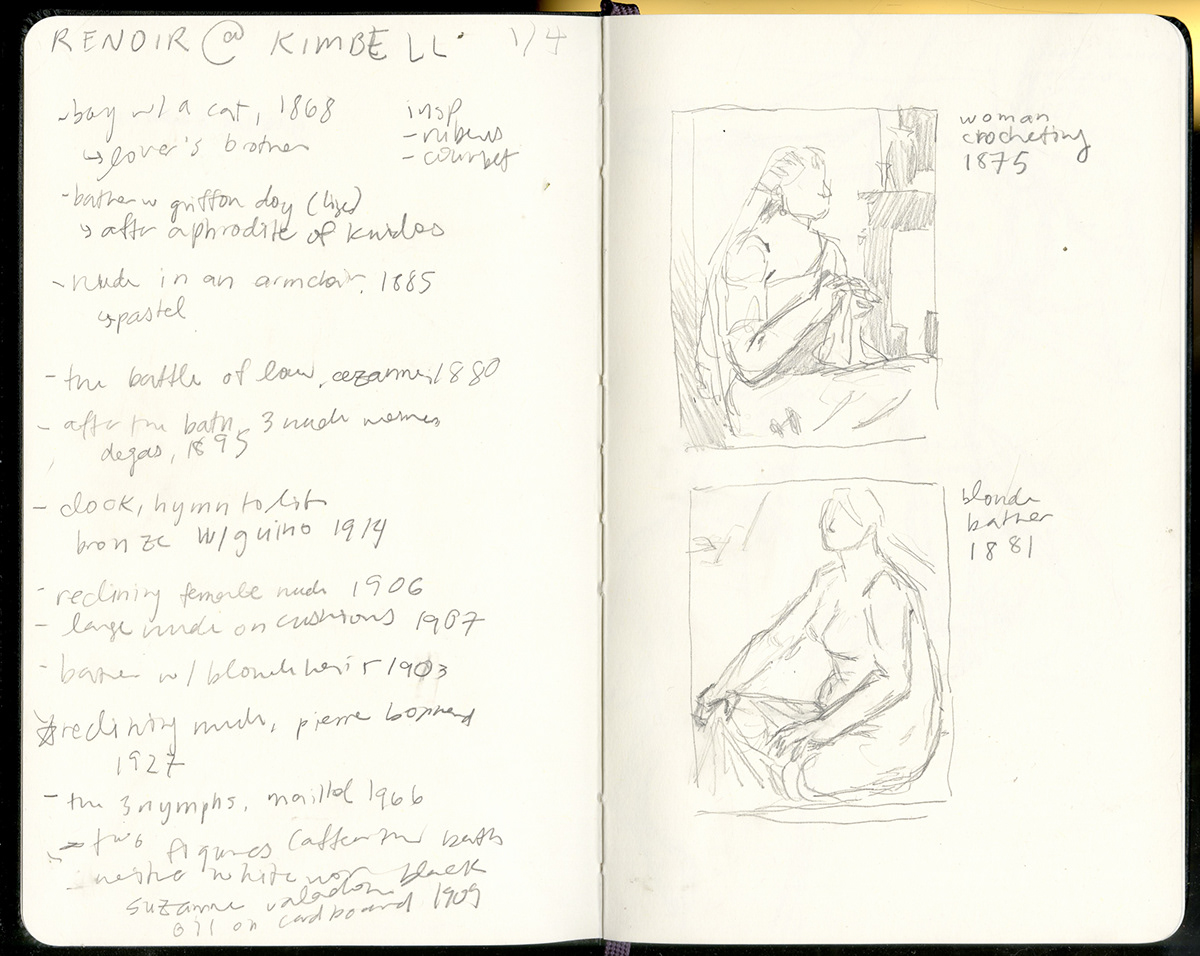 RENOIR @ KIMBELL 1/4
- boy w/ a cat, 1868
↳ lover's brother
insp
- rubens
- courbet
- bather w griffon dog (lise)
↳ after aphrodite of knidos
- nude in an armchair, 1885
↳ pastel
- the battle of love, cezanne, 1880
- after the bath, 3 nude women
degas, 1895
- clock, hymn to life
bronze w/ guino 1914
- reclining female nude 1906
- large nude on cushions 1907
- bather w/ blonde hair 1903
reclining nude, pierre bonnard
1927
- the 3 nymphs, maillol 1966
- two figures (after the bath
neither white nor black
suzanne valadon 1909
oil on cardboard
woman
crocheting
1875
blonde
bather
1881